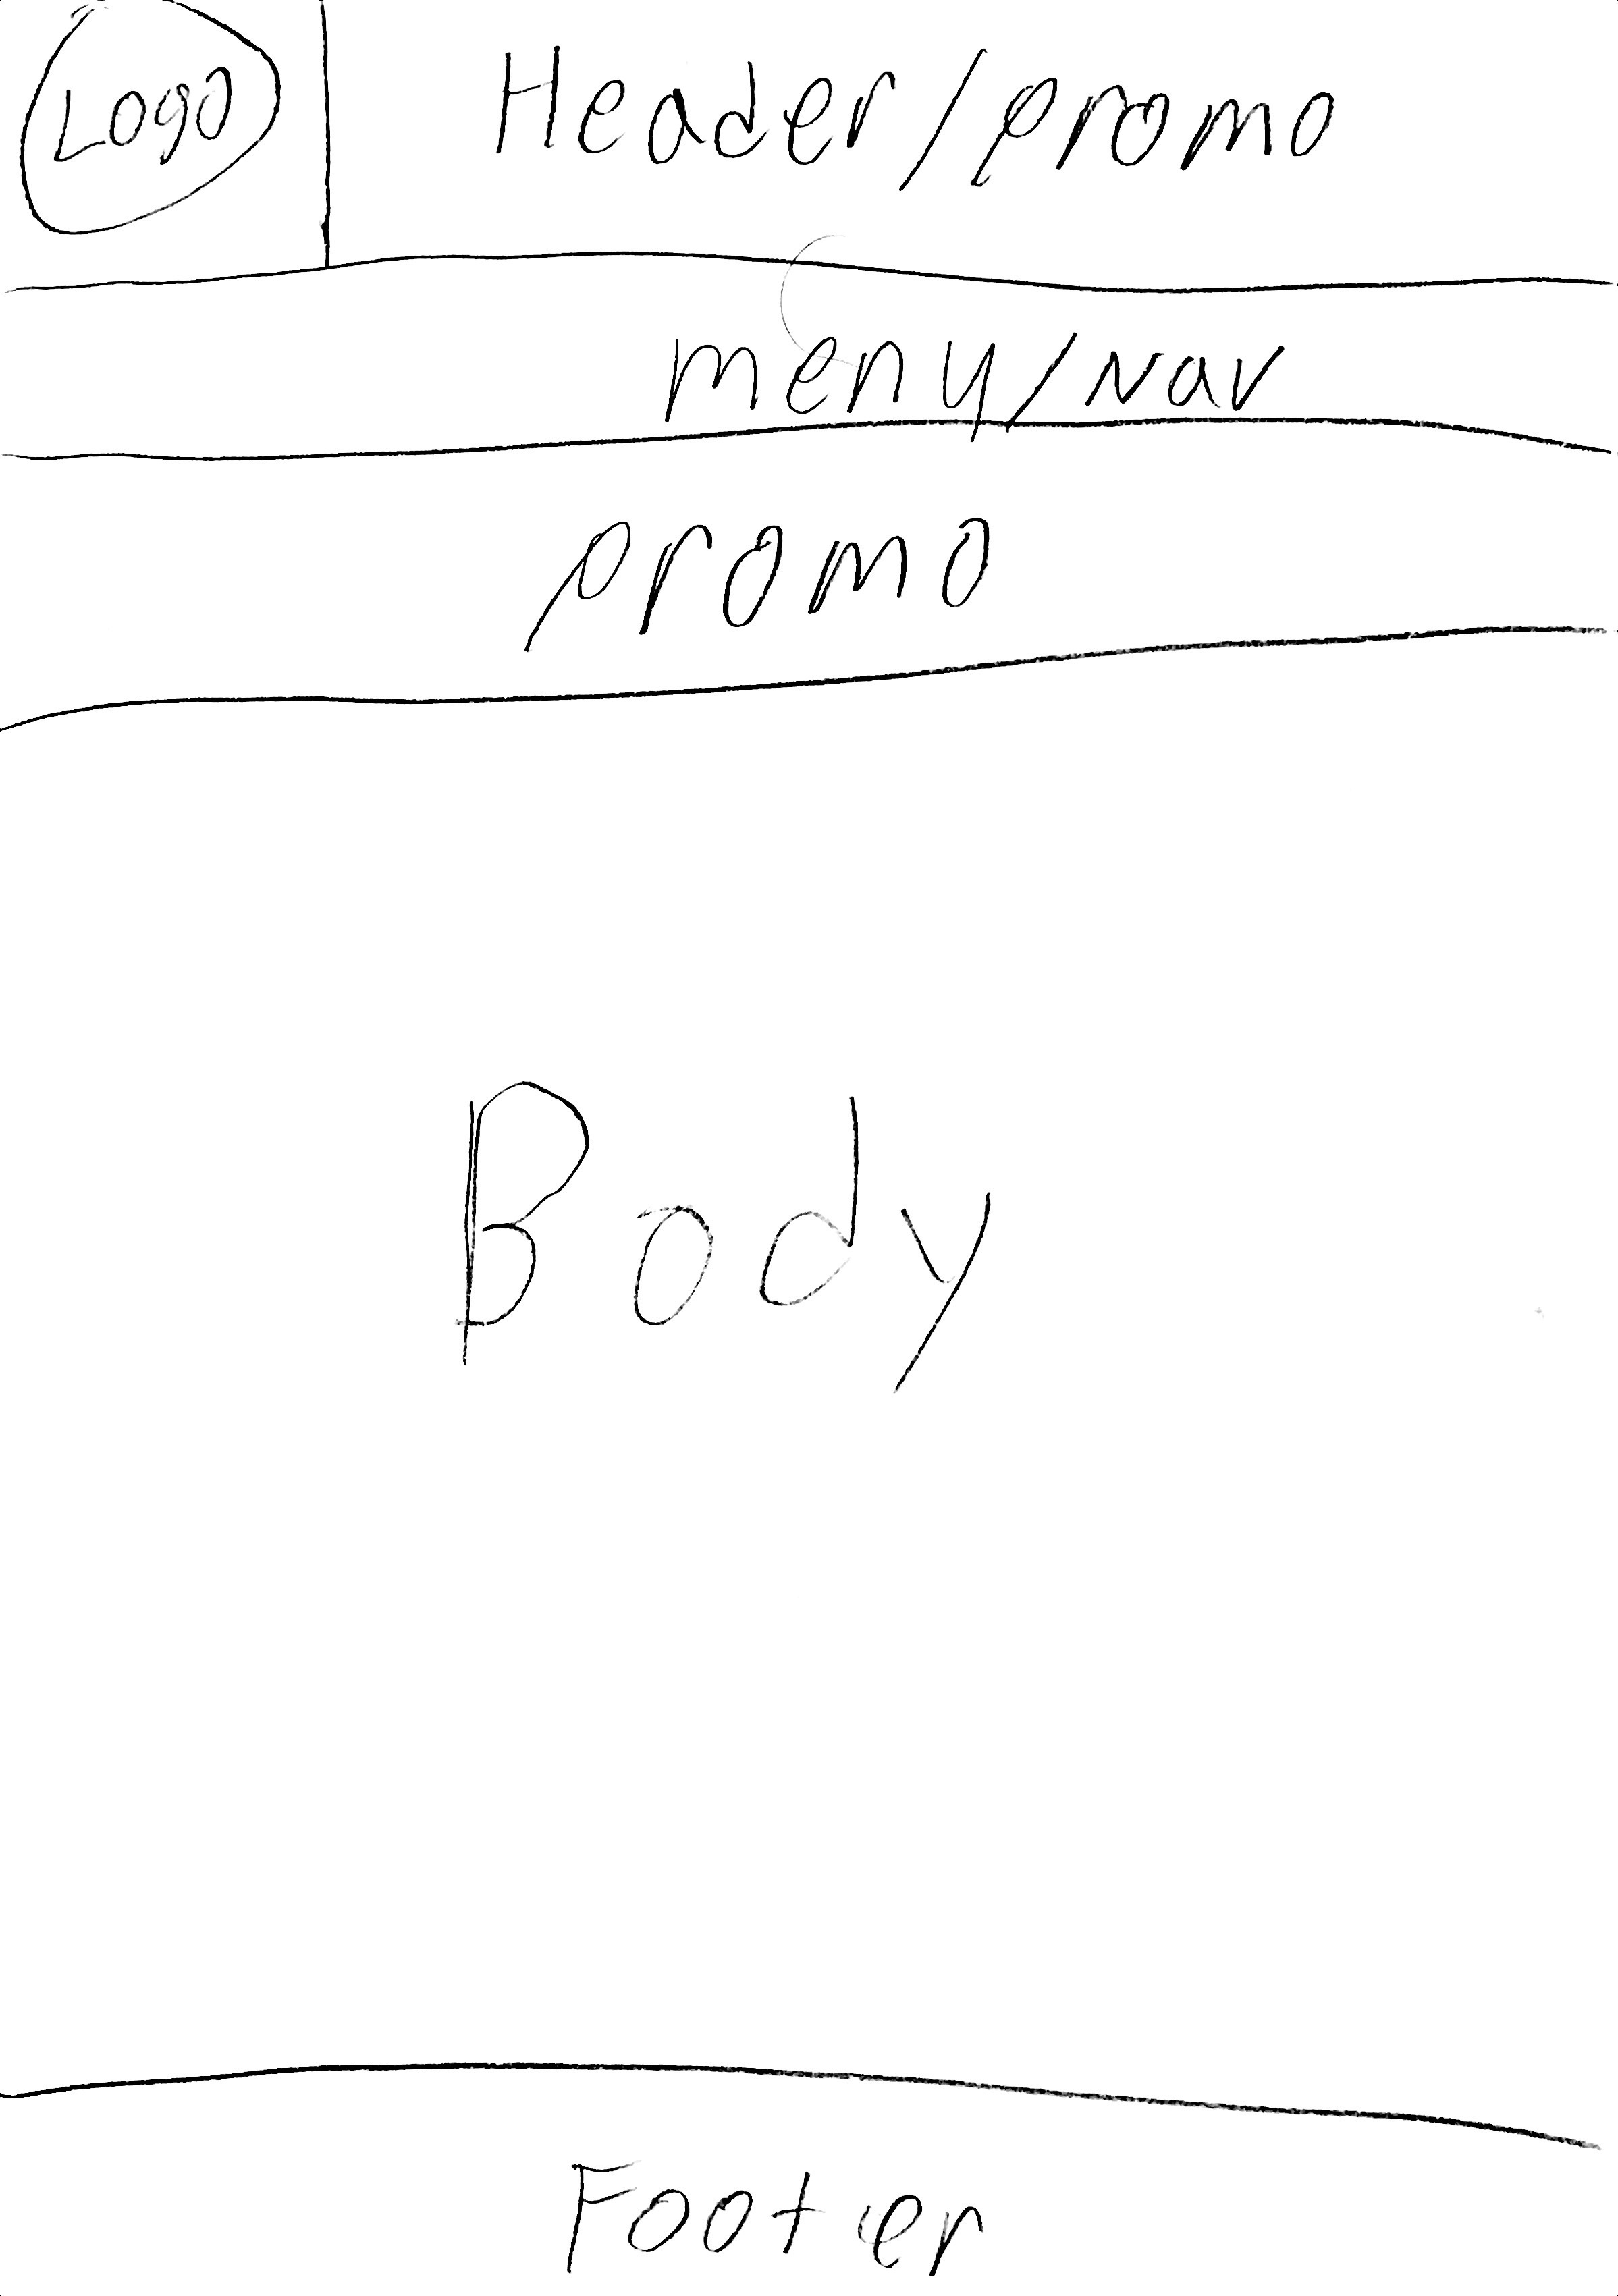 Logo
Header/promo
meny/Nav
promo
Body
Footer